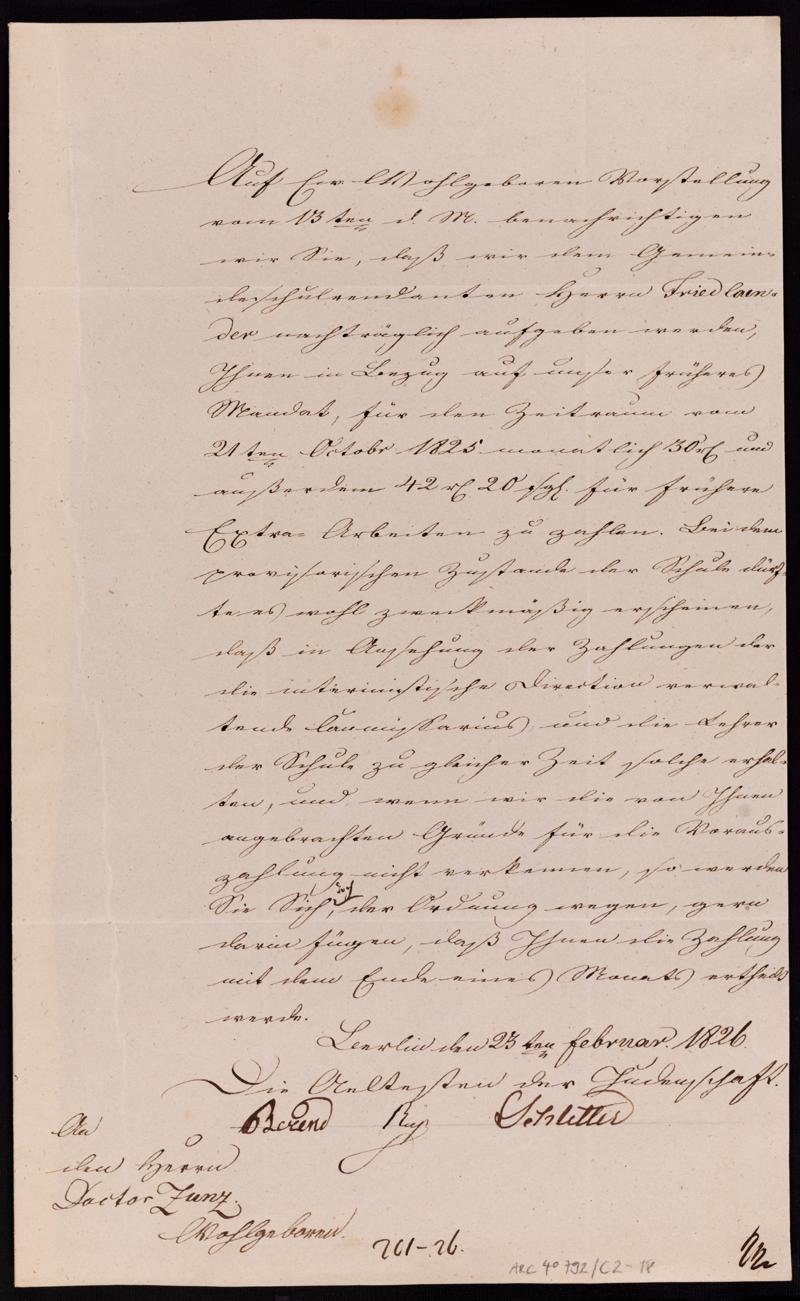 Auf Ew. Wohlgeboren Vorstellung
vom 13ten d. M. benachrichtigen
wir Sie, daß wir dem Gemein-
deschulrendanten Herrn Friedlaen-
der nachträglich aufgeben werden,
Ihnen in Bezug auf unser früheres
Mandat, für den Zeitraum vom
21ten Octobr 1825 monatlich 30 rℓ und
außerdem 42 rℓ 20 sgl. für frühere
Extra-Arbeiten zu zahlen. Bei dem
provisorischen Zustande der Schule dürf-
te es wohl zweckmäßig erscheinen,
daß in Ansehung der Zahlungen der
die interimistische Direction verwal-
tende Commissarius und die Lehrer
der Schule zu gleicher Zeit solche erhal-
ten, und wenn wir die von Ihnen
angebrachten Gründe für die Voraus-
zahlung nicht verkennen, so werden
Sie Sich doch, der Ordnung wegen, gern
darin fügen, daß Ihnen die Zahlung
mit dem Ende eines Monats ertheilt
werde.
Berlin den 23ten Februar 1826
Die Aeltesten der Judenschaft.
Berend Schlesier
An
den Herrn
Doctor Zunz
Wohlgeboren.
261-26.
ARC 4° 792/C2-18